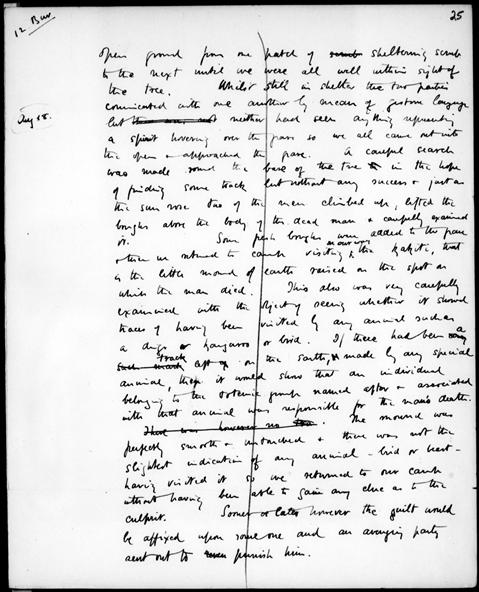 25
12 Bar
open ground from one patch of sheltering scrub
to the next until we were all well within sight of
the tree. Whilst still in shelter the two parties
comunicated with one another by means of gesture language
but neither had seen anything representing
a spirit hovering over the grave so we all came out into
the open & approached the grave. A careful search
was made round the base of the tree in the hope
of finding some track but without any success & just as
the sun rose two of the men climbed up, lifted the
boughs above the body of the dead man & carefully examined
it. Some fresh boughs were added to the grave
& then we returned to camp visiting on our way the Kakiti, that
is the little mound of earth raised on the spot on
which the man died. This also was very carefully
examined with the object of seeing whether it showed
traces of having been visited by any animal such as
a dingo or kangaroo or bird. If there had been a
track on the earth, made by any special
animal, then it would show that an individual
belonging to the totemic group named after & associated
with that animal was responsible for the man's death.
There was however no The mound was
perfectly smooth & untouched & there was not the
slightest indication of any animal - bird or beast -
having visited it so we returned to our camp
without having been able to gain any clue as to the
culprit. Sooner or later however the guilt would
be affixed upon some one and an avenging party
sent out to punish him.